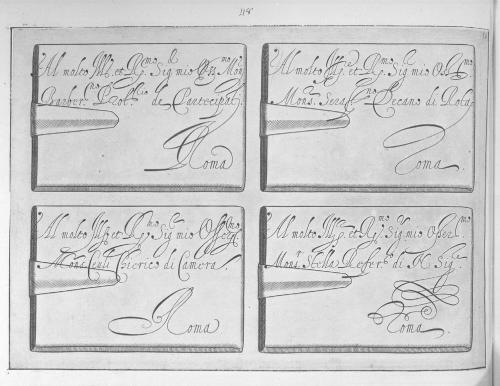 48
Al molto Ill.re et R.mo Sig.r mio Oss.mo Mons.
Barber.no Prot.rio de Partecipati.
Roma
Al molto Ill.re et R.mo Sig.r mio Oss.mo
Mons.r Seraf.no Decano di Rota
Roma.
Al molto Ill.re et R.mo Sig.r mio Osser.mo
Mons.r Centi Chierico di Camera.
Roma
Al molto Ill.re et R.mo Sig.r mio Osser.mo
Mons.r Stella Refer.o di N. Sig.re
Roma.